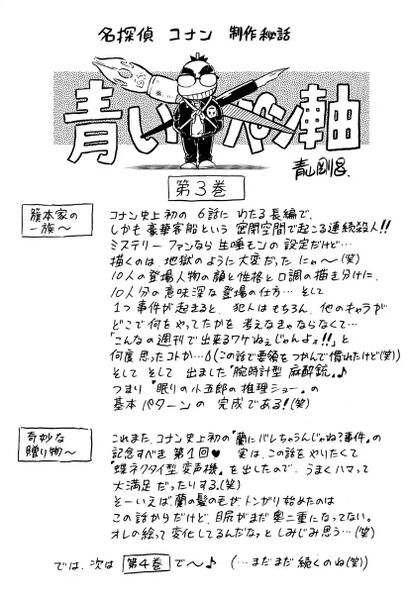 名探偵 コナン 制作秘話
青いペン軸
青山剛昌.
第3巻
籏本家の
一族〜
コナン史上初の 6話に わたる長編で、
しかも 豪華客船という 密閉空間で起こる連続殺人!!
ミステリー ファンなら 生唾モンの設定だけど…
描くのは、地獄のように大変だった にゃ〜(笑)
10人の登場人物の顔と性格と口調の描き分けに、
10人分の意味深な登場の仕方… そして
1つ事件が起きると、犯人はもちろん、他のキャラが
どこで何をやってたかを 考えなきゃならなくて…
「こんなの週刊で出来るワケねぇじゃんよォ!!」と
何度 思ったコトか…(この話で要領をつかんで慣れたけど(笑))
そして そして 出ました『腕時計型 麻酔銃』♪
つまり『眠りの小五郎の推理ショー』の
基本パターンの 完成である!(笑)
奇妙な
贈り物〜
これまた、コナン史上初の『蘭にバレちゃうんじゃね?事件』の
記念すべき 第1回♥ 実は、この話をやりたくて
『蝶ネクタイ型 変声機』を出したので、うまくハマって
大満足だったりする。(笑)
そーいえば蘭の髪の毛が、トンガリ始めたのは
この話からだけど、目尻がまだ奥二重になってない。
オレの絵って変化してるんだなァとしみじみ思う…(笑)
では、次は 第4巻 で〜♪ (…まだまだ 続くのね(笑))